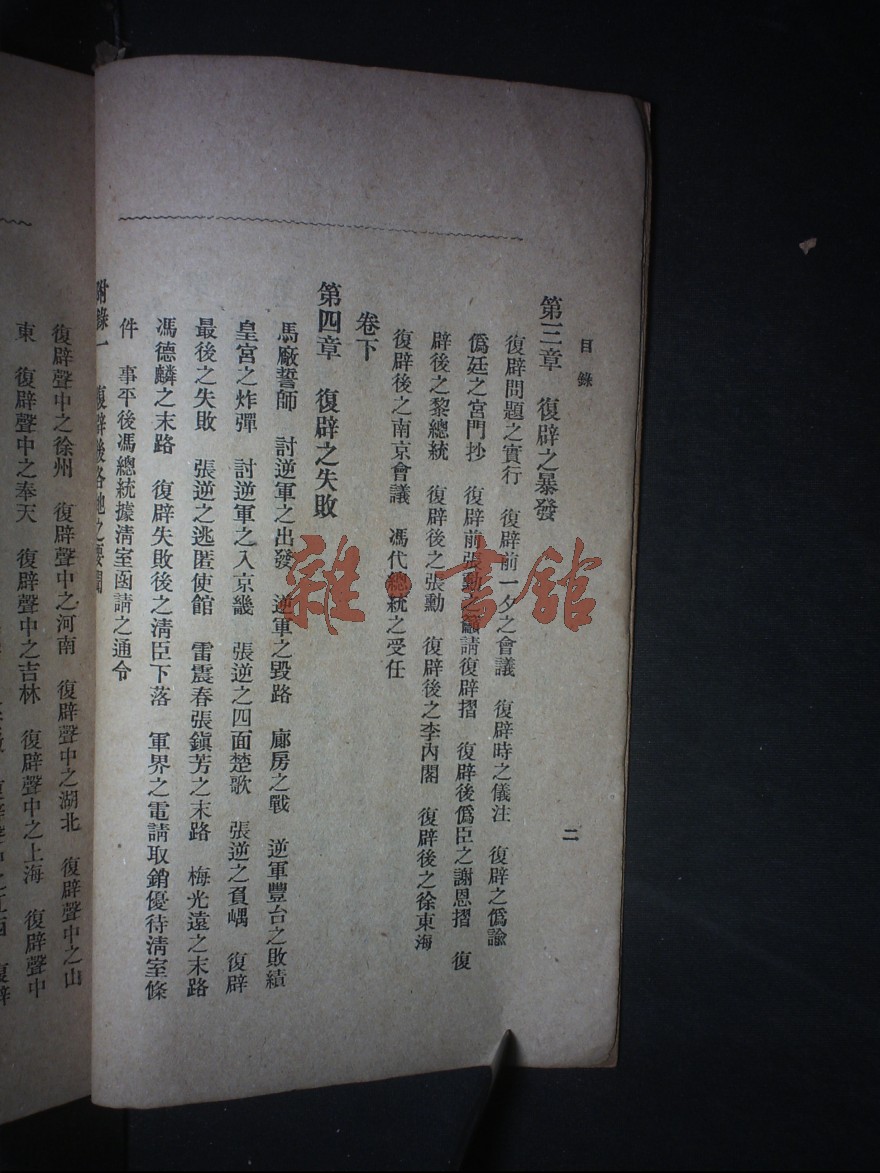 目錄
二
第三章　復辟之暴發
復辟問題之實行　復辟前一夕之會議　復辟時之儀注　復辟之僞諭
僞廷之宮門抄　復辟前張勳之籲請復辟摺　復辟後僞臣之謝恩摺　復
辟後之黎總統　復辟後之張勳　復辟後之李內閣　復辟後之徐東海
復辟後之南京會議　馮代總統之受任
卷下
第四章　復辟之失敗
馬廠誓師　討逆軍之出發　逆軍之毀路　廊房之戰　逆軍豐台之敗績
皇宮之炸彈　討逆軍之入京畿　張逆之四面楚歌　張逆之負嵎　復辟
最後之失敗　張逆之逃匿使館　雷震春張鎮芳之末路　梅光遠之末路
馮德麟之末路　復辟失敗後之清臣下落　軍界之電請取銷優待清室條
件　事平後馮總統據清室函請之通令
附錄一　復辟後各地之要聞
復辟聲中之徐州　復辟聲中之河南　復辟聲中之湖北　復辟聲中之山
東　復辟聲中之奉天　復辟聲中之吉林　復辟聲中之上海　復辟聲中
雜·書館